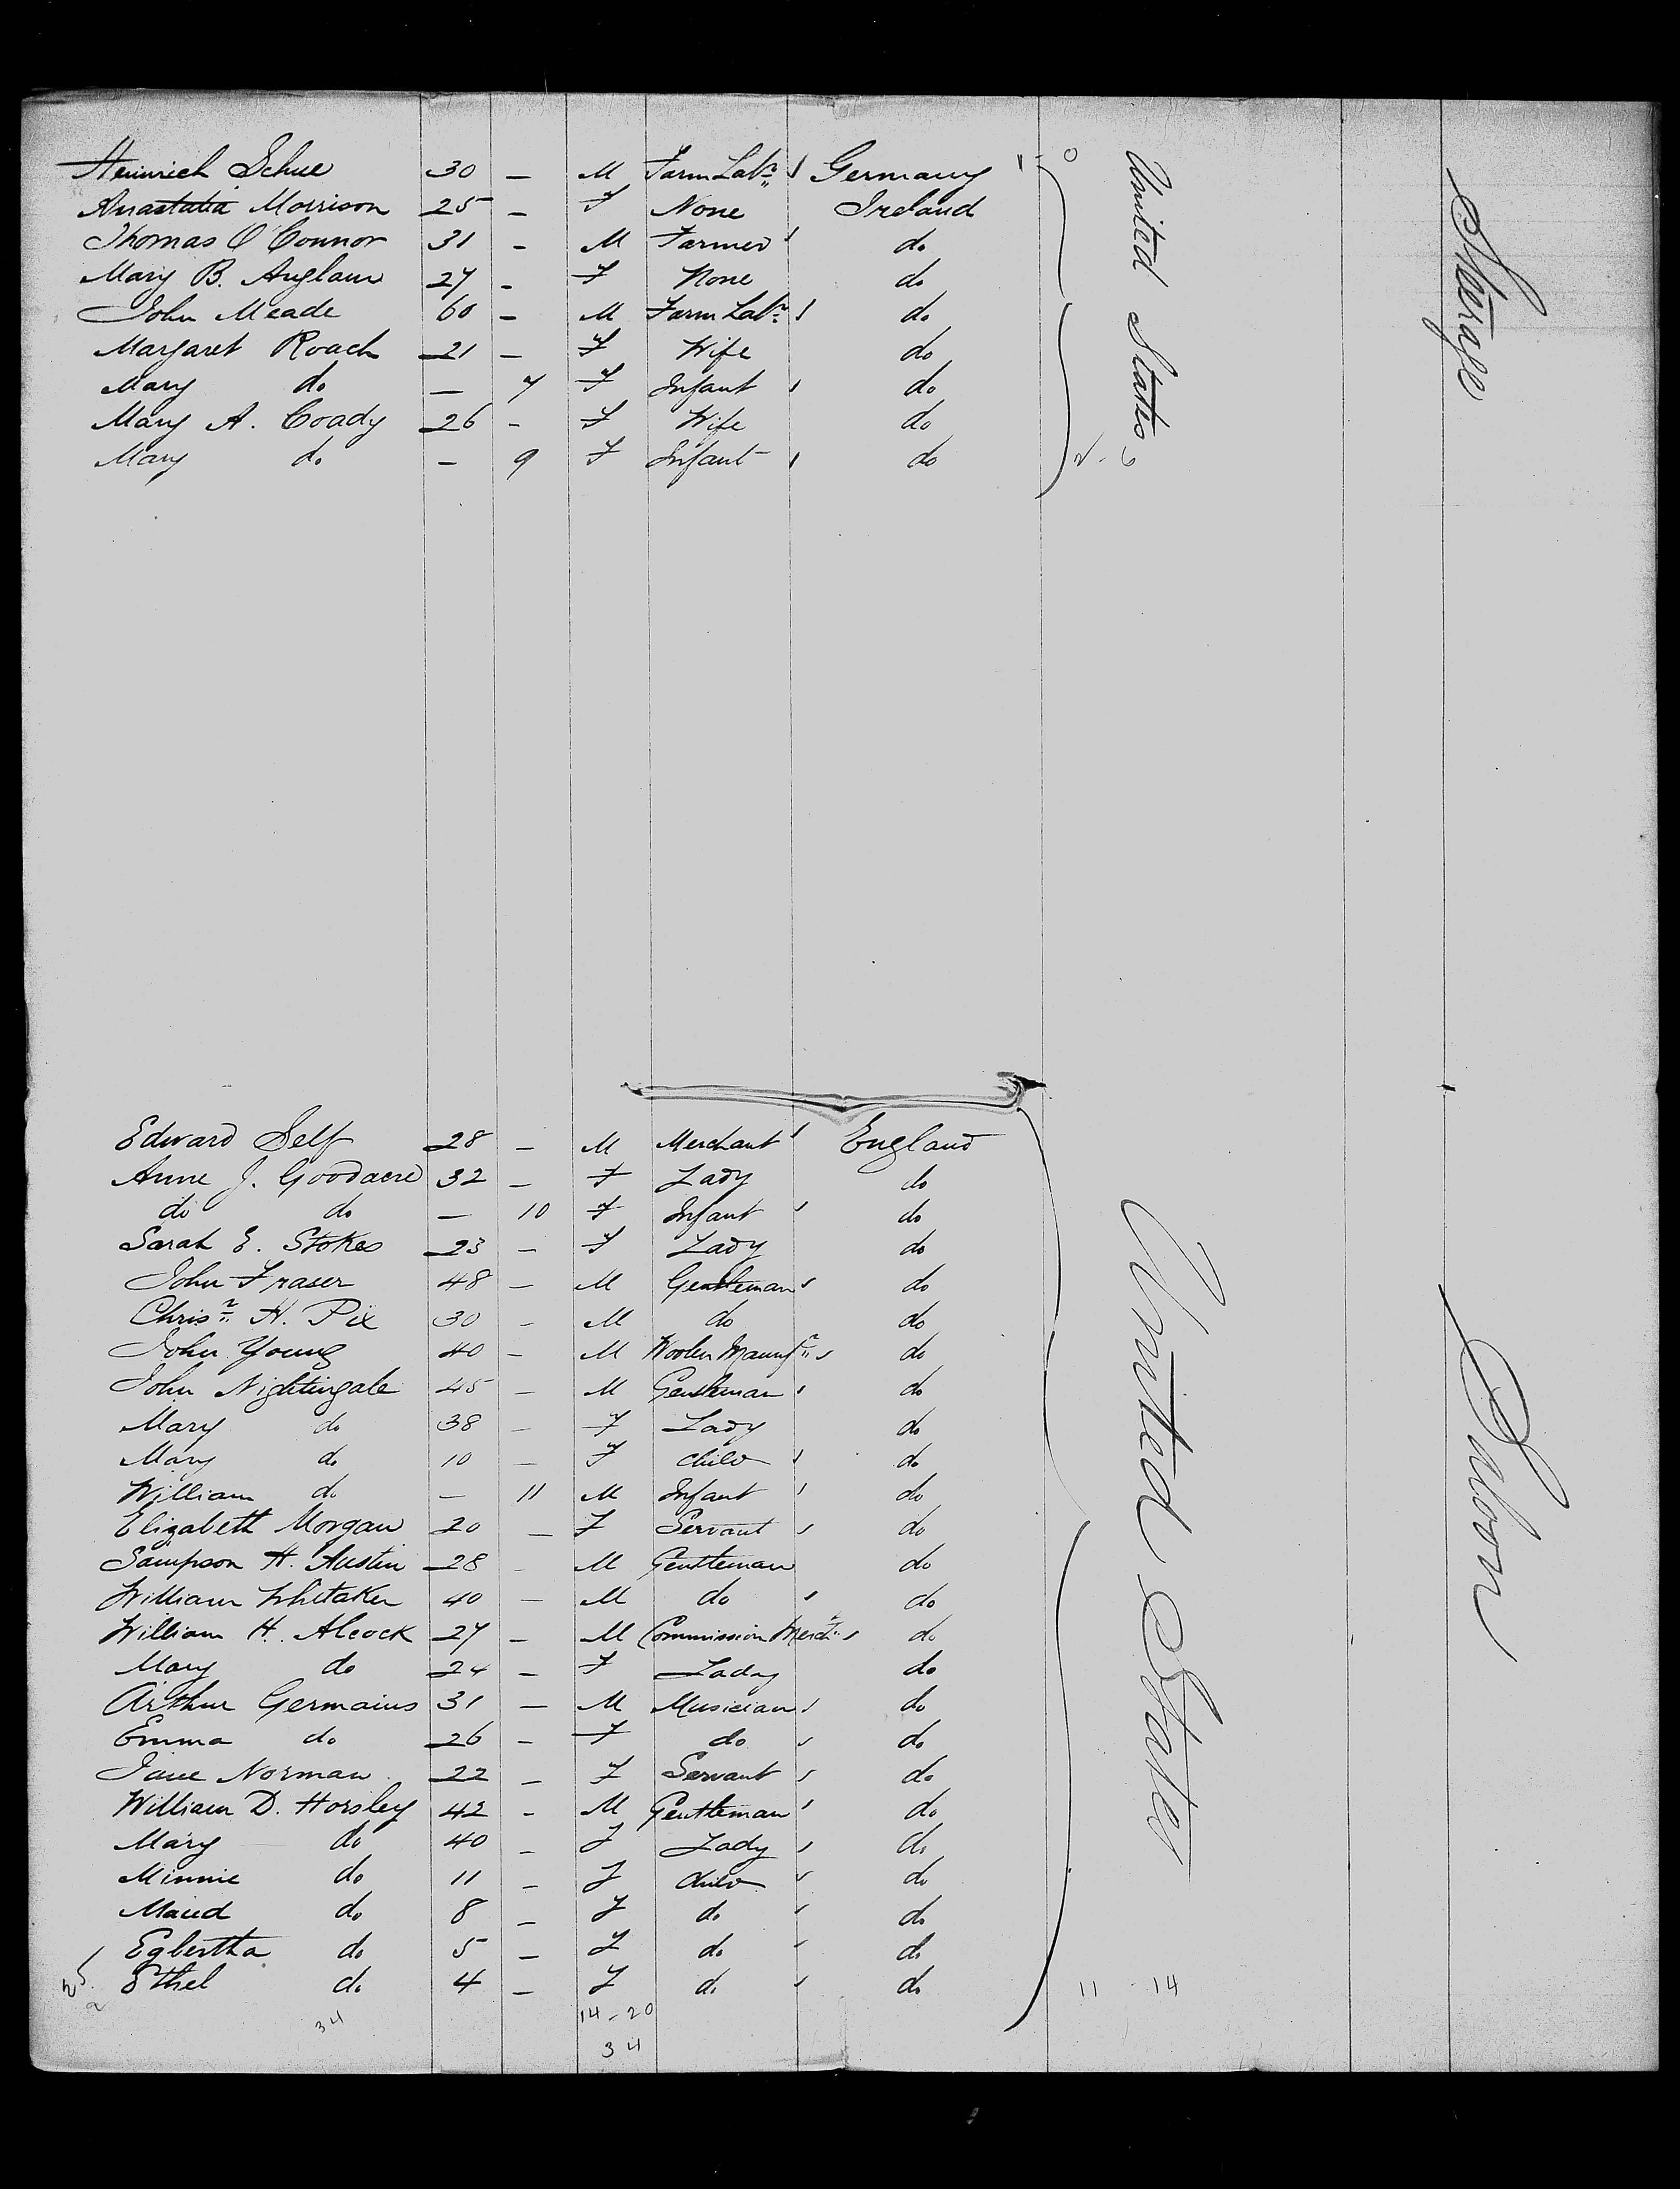 Heinrich Schue 30 — M Farm Labr Germany 1 - 0
Anastatia Morrison 25 — F None Ireland
Thomas O'Connor 31 — M Farmer do
Mary B. Anglaur 27 — F None do
John Meade 60 — M Farm Labr do
Margaret Roach 21 — F Wife do
Mary do — 7 F Infant do
Mary A. Coady 26 — F Wife do
Mary do — 9 F Infant do 2 - 6
United States
Steerage
Edward Self 28 — M Merchant England
Anne J. Goodacre 32 — F Lady do
do do — 10 F Infant do
Sarah E. Stokes 23 — F Lady do
John Fraser 48 — M Gentleman do
Chrisr H. Pix 30 — M do do
John Young 40 — M Woolen Manufr do
John Nightingale 45 — M Gentleman do
Mary do 38 — F Lady do
Mary do 10 — F Child do
William do — 11 M Infant do
Elizabeth Morgan 20 — F Servant do
Sampson H. Austin 28 — M Gentleman do
William Whitaker 40 — M do do
William H. Alcock 27 — M Commission Mercht do
Mary do 24 — F Lady do
Arthur Germains 31 — M Musician do
Emma do 26 — F do do
Jane Norman 22 — F Servant do
William D. Horsley 42 — M Gentleman do
Mary do 40 — F Lady do
Minnie do 11 — F Child do
Maud do 8 — F do do
Egbertha do 5 — F do do
25 Ethel do 4 — F do do 11 - 14
United States
Saloon
34 14-20
34